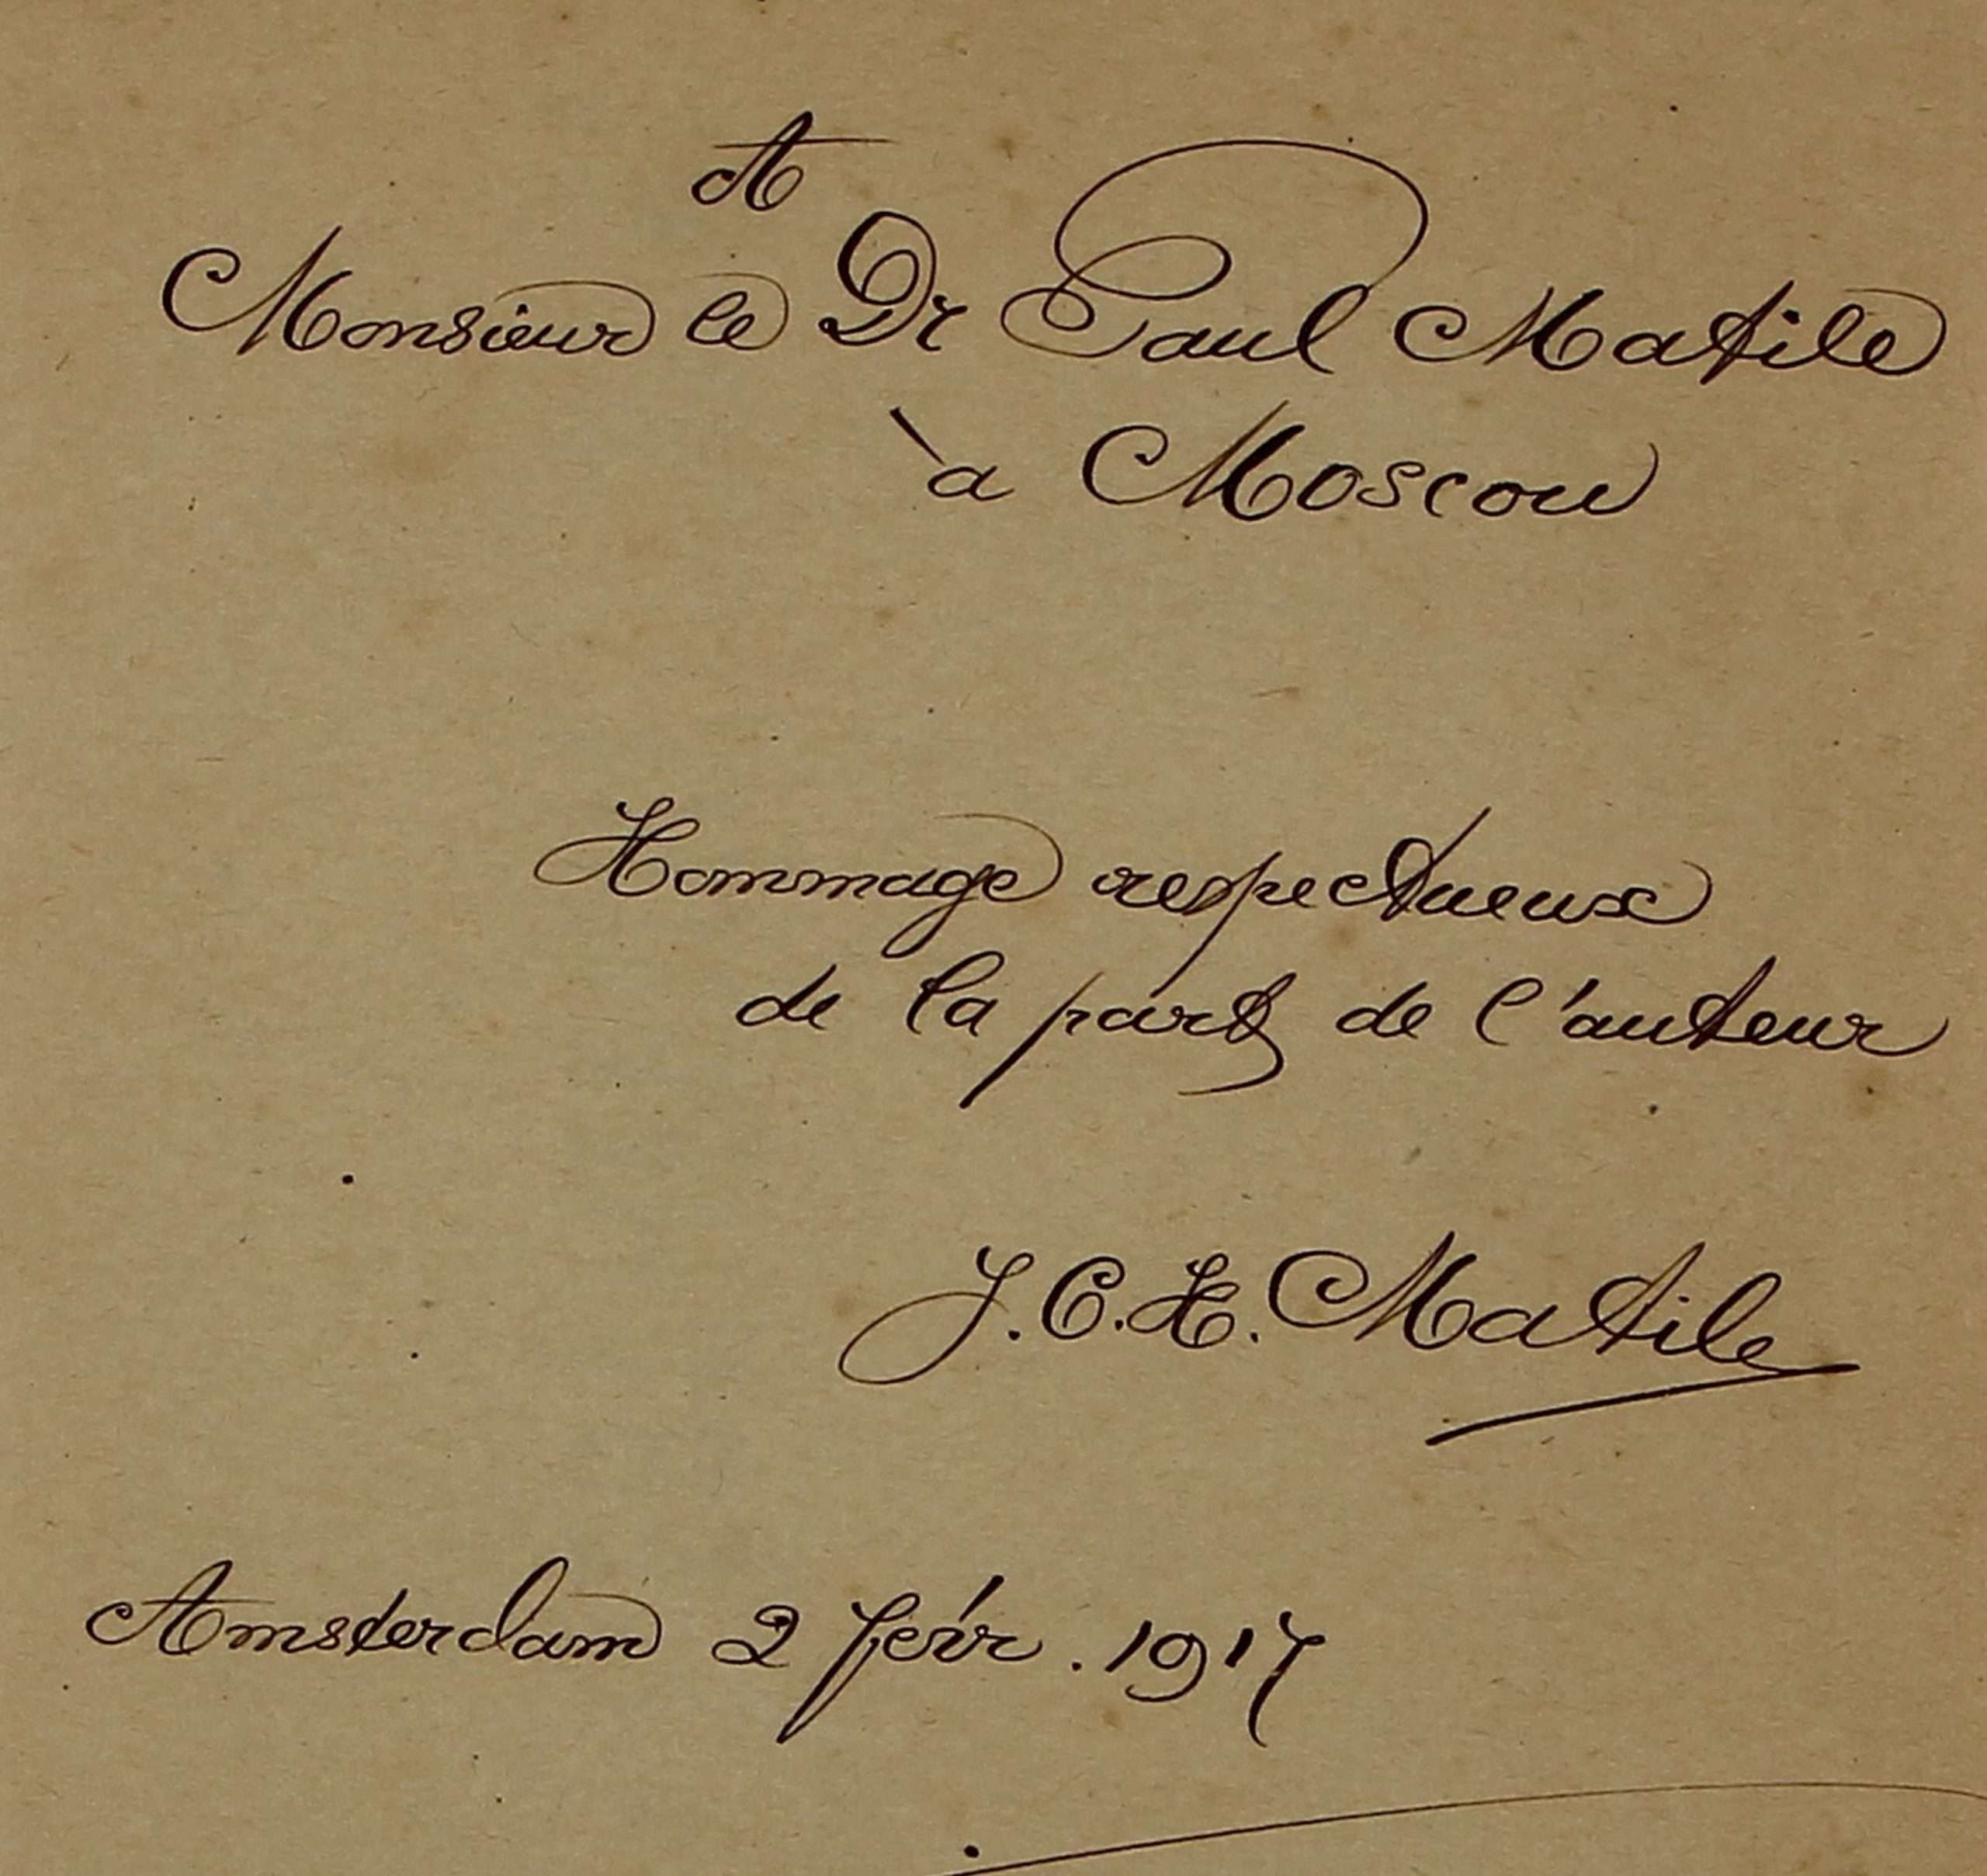 A
Monsieur le Dr Paul Matile
à Moscou
Hommage respectueux
de la part de l'auteur
J. C. H. Matile
Amsterdam 2 févr. 1917